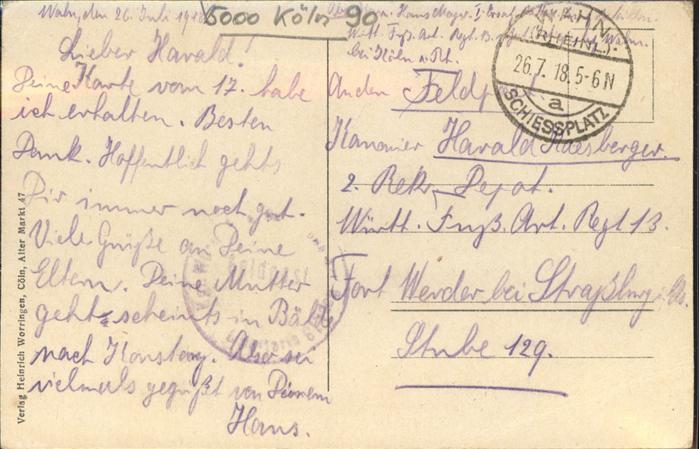 Wahn, den 26. Juli 1918
5000 Köln 90
Lieber Harald!
Deine Karte vom 17. habe
ich erhalten. Besten
Dank. Hoffentlich gehts
Dir immer noch gut.
Viele Grüße an Deine
Eltern. Deine Mutter
geht scheints in Bälde
nach Konstanz. Also sei
vielmals gegrüßt von Deinem
Hans.
Verlag Heinrich Worringen, Cöln, Alter Markt 47
Hans Mayer
Württ. Fuß. Art. Regt. 13.
bei Köln a. Rh.
WAHN
(RHEINL.)
26.7.18.5-6N
a
SCHIESSPLATZ
An den
Kanonier Harald
2. Rekr. Depot.
Württ. Fuß. Art. Regt 13.
Fort Werder bei Straßburg i. Els.
Stube 129.